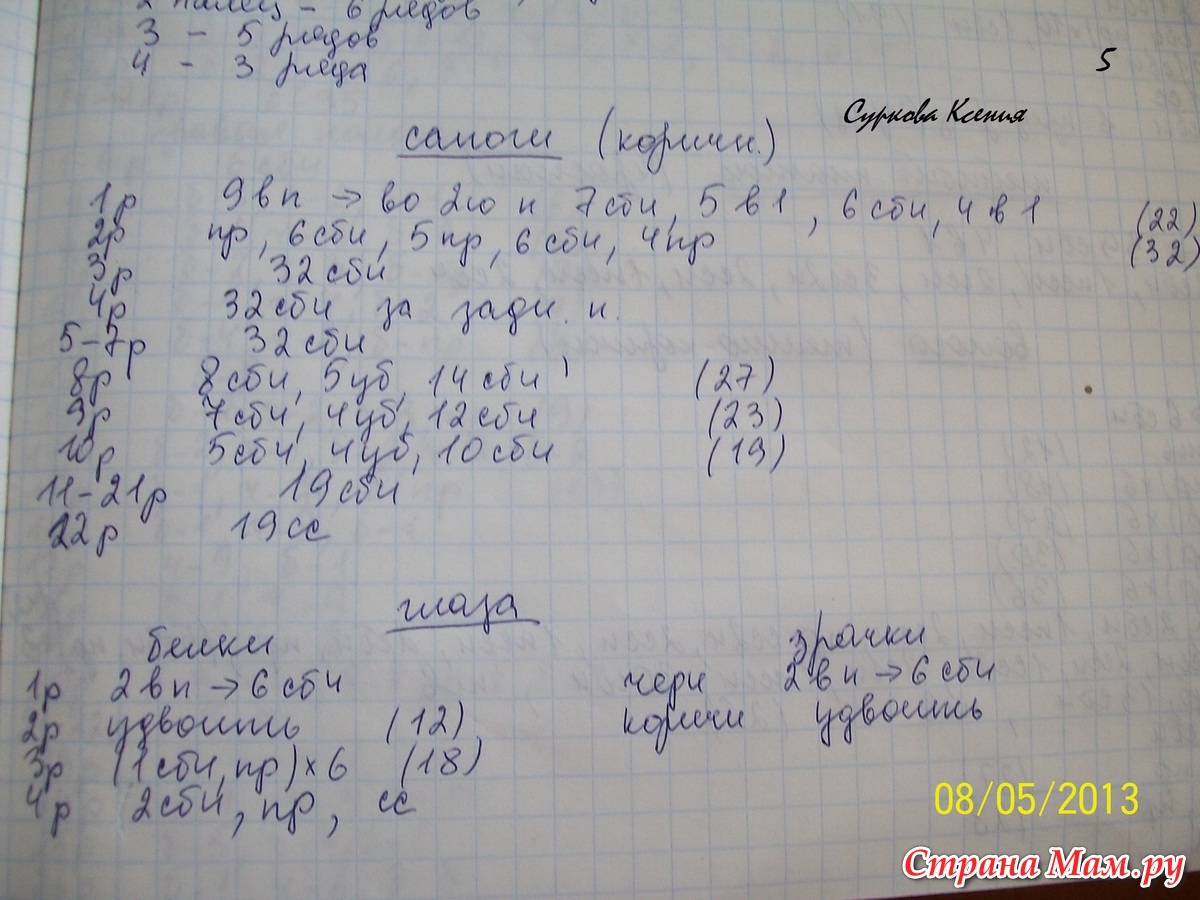 2 палец - 6 рядов
3 - 5 рядов
4 - 3 ряда
5
Суркова Ксения
сапоги (коричн.)
1р 9вп → во 2ю п 7сбн, 5 в 1, 6сбн, 4 в 1 (22)
2р пр, 6сбн, 5пр, 6сбн, 4пр (32)
3р 32сбн
4р 32сбн за задн. п.
5-7р 32сбн
8р 8сбн, 5уб, 14сбн (27)
9р 7сбн, 4уб, 12сбн (23)
10р 5сбн, 4уб, 10сбн (19)
11-21р 19сбн
22р 19сс
глаза
белки зрачки
1р 2вп → 6сбн черн 2вп → 6сбн
2р удвоить (12) коричн удвоить
3р (1сбн, пр)×6 (18)
4р 2сбн, пр, сс
08/05/2013
Страна Мам.ру